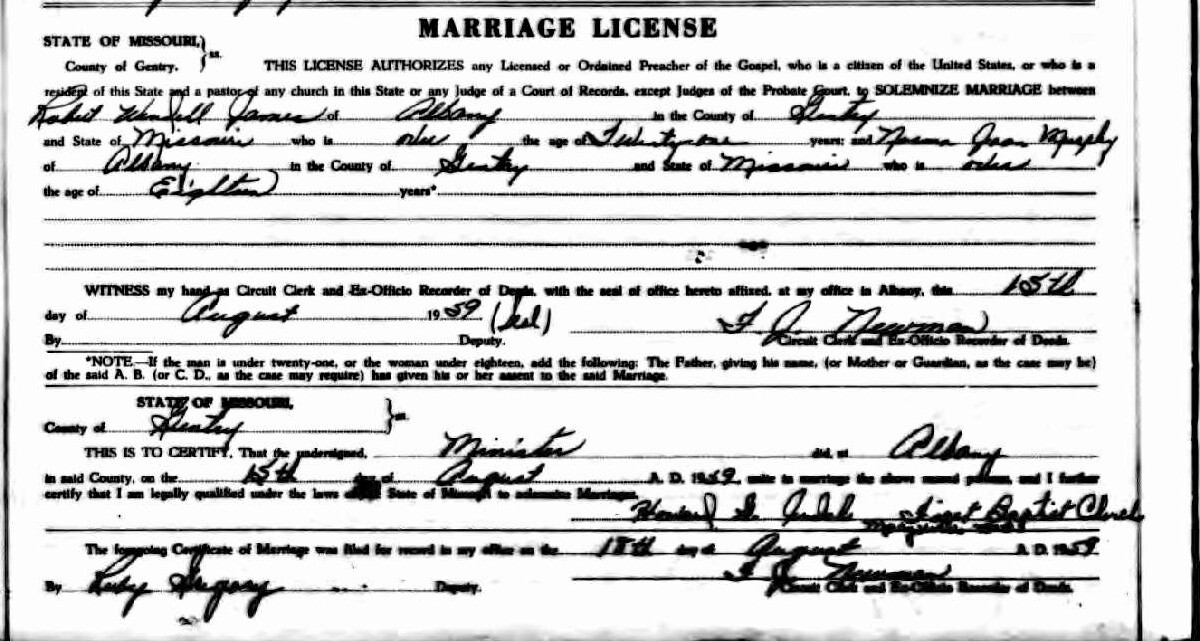 MARRIAGE LICENSE
STATE OF MISSOURI,
County of Gentry. } ss. THIS LICENSE AUTHORIZES any Licensed or Ordained Preacher of the Gospel, who is a citizen of the United States, or who is a
resident of this State and a pastor of any church in this State or any Judge of a Court of Records, except Judges of the Probate Court, to SOLEMNIZE MARRIAGE between
Robert Wendell James of Albany in the County of Gentry
and State of Missouri who is over the age of Twenty one years; and Norma Jean Murphy
of Albany in the County of Gentry and State of Missouri who is over
the age of Eighteen years*
WITNESS my hand as Circuit Clerk and Ex-Officio Recorder of Deeds, with the seal of office hereto affixed, at my office in Albany, this 15th
day of August 1959 (Seal) F J. Newman
By Deputy. Circuit Clerk and Ex-Officio Recorder of Deeds.
*NOTE.—If the man is under twenty-one, or the woman under eighteen, add the following: The Father, giving his name, (or Mother or Guardian, as the case may be)
of the said A. B. (or C. D., as the case may require) has given his or her assent to the said Marriage.
STATE OF MISSOURI,
County of Gentry } ss.
THIS IS TO CERTIFY, That the undersigned, Minister did, at Albany
in said County, on the 15th day of August A. D. 1959, unite in marriage the above named persons, and I further
certify that I am legally qualified under the laws of the State of Missouri to solemnize Marriages.
Howard First Baptist Church
Maryville
The foregoing Certificate of Marriage was filed for record in my office on the 18th day of August A. D. 1959
F J. Newman
By Ruby Gregory Deputy. Circuit Clerk and Ex-Officio Recorder of Deeds.